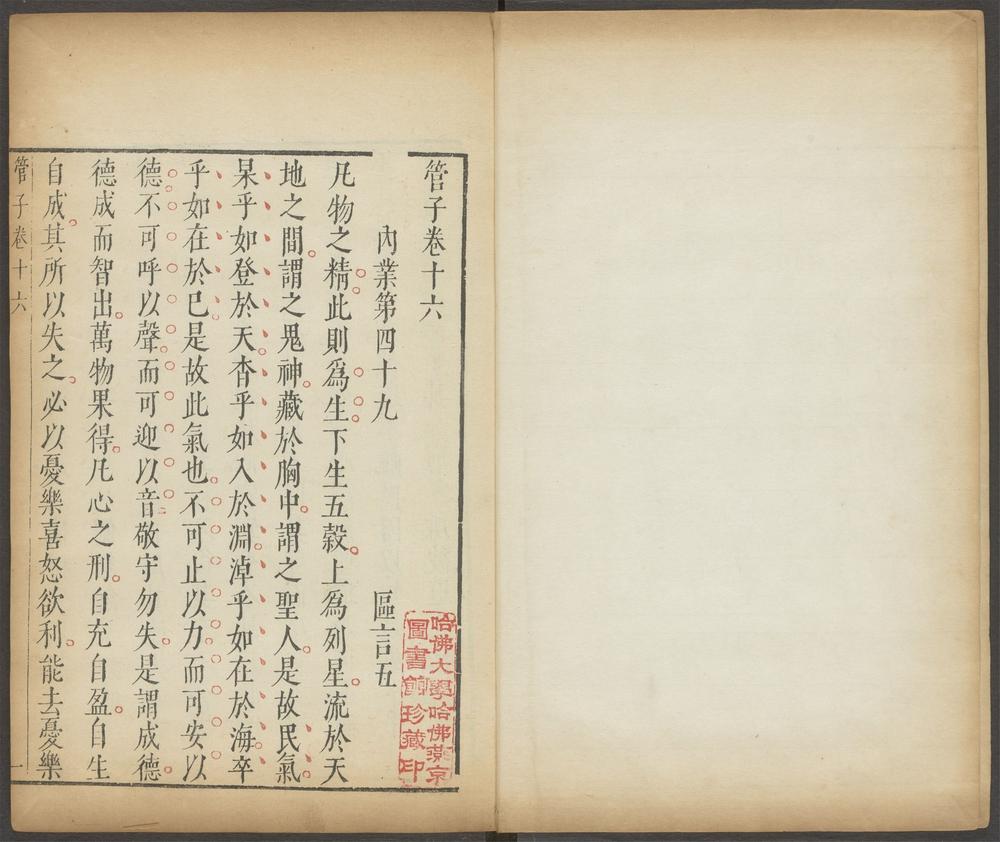 管子卷十六
內業第四十九 區言五
凡物之精此則爲生下生五穀上爲列星流於天
地之間謂之鬼神藏於胸中謂之聖人是故民氣
杲乎如登於天杳乎如入於淵淖乎如在於海卒
乎如在於己是故此氣也不可止以力而可安以
德不可呼以聲而可迎以音敬守勿失是謂成德
德成而智出萬物果得凡心之刑自充自盈自生
自成其所以失之必以憂樂喜怒欲利能去憂樂
管子卷十六 一
哈佛大學哈佛燕京
圖書館珍藏印